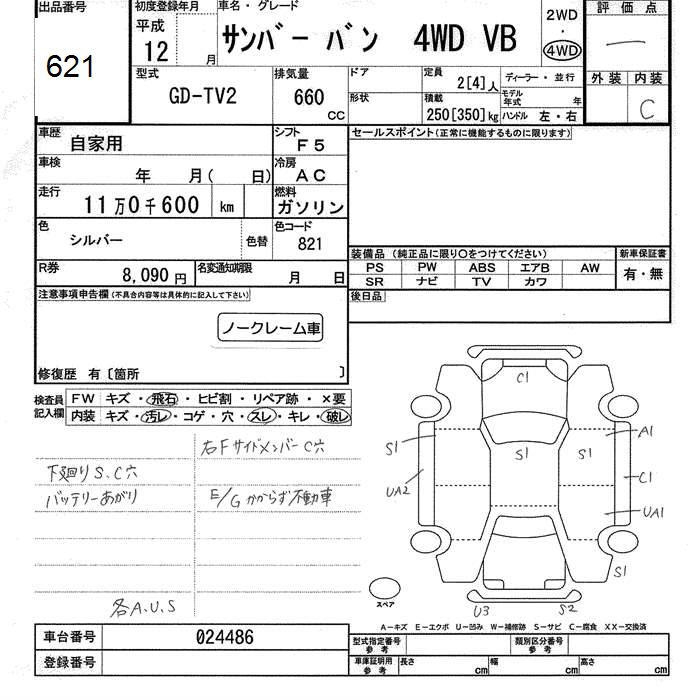 出品番号
621
初度登録年月
平成
12 月
車名・グレード
サンバー バン 4WD VB
2WD
・
4WD
評価点
―
外装 内装
C
型式
GD-TV2
排気量
660 CC
ドア
形状
定員
2[4]人
積載
250[350]kg
ディーラー・並行
モデル年式 年
ハンドル 左・右
車歴
自家用
シフト
F5
車検
年 月( 日)
冷房
AC
走行
11万0千600 km
燃料
ガソリン
色
シルバー
色替
色コード
821
R券
8,090円
名変通知期限
月 日
セールスポイント(正常に機能するものに限ります)
装備品(純正品に限り○をつけてください)
PS PW ABS エアB AW
SR ナビ TV カワ
新車保証書
有・無
後日品
注意事項申告欄(不具合内容等は具体的に記入して下さい)
ノークレーム車
修復歴 有〔箇所 〕
検査員記入欄
FW キズ・飛石・ヒビ割・リペア跡・×要
内装 キズ・汚レ・コゲ・穴・スレ・キレ・破レ
右Fサイドメンバー C穴
下廻りS、C穴
バッテリーあがり
E/Gかからず不動車
各A.U.S
C1
S1
S1
S1
A1
C1
UA2
UA1
S1
U3
S2
スペア
A-キズ E-エクボ U-凹み W-補修跡 S-サビ C-腐食 XX-交換済
車台番号 024486
登録番号
型式指定番号 参考
類別区分番号 参考
車庫証明用 参考
長さ cm
幅 cm
高さ cm